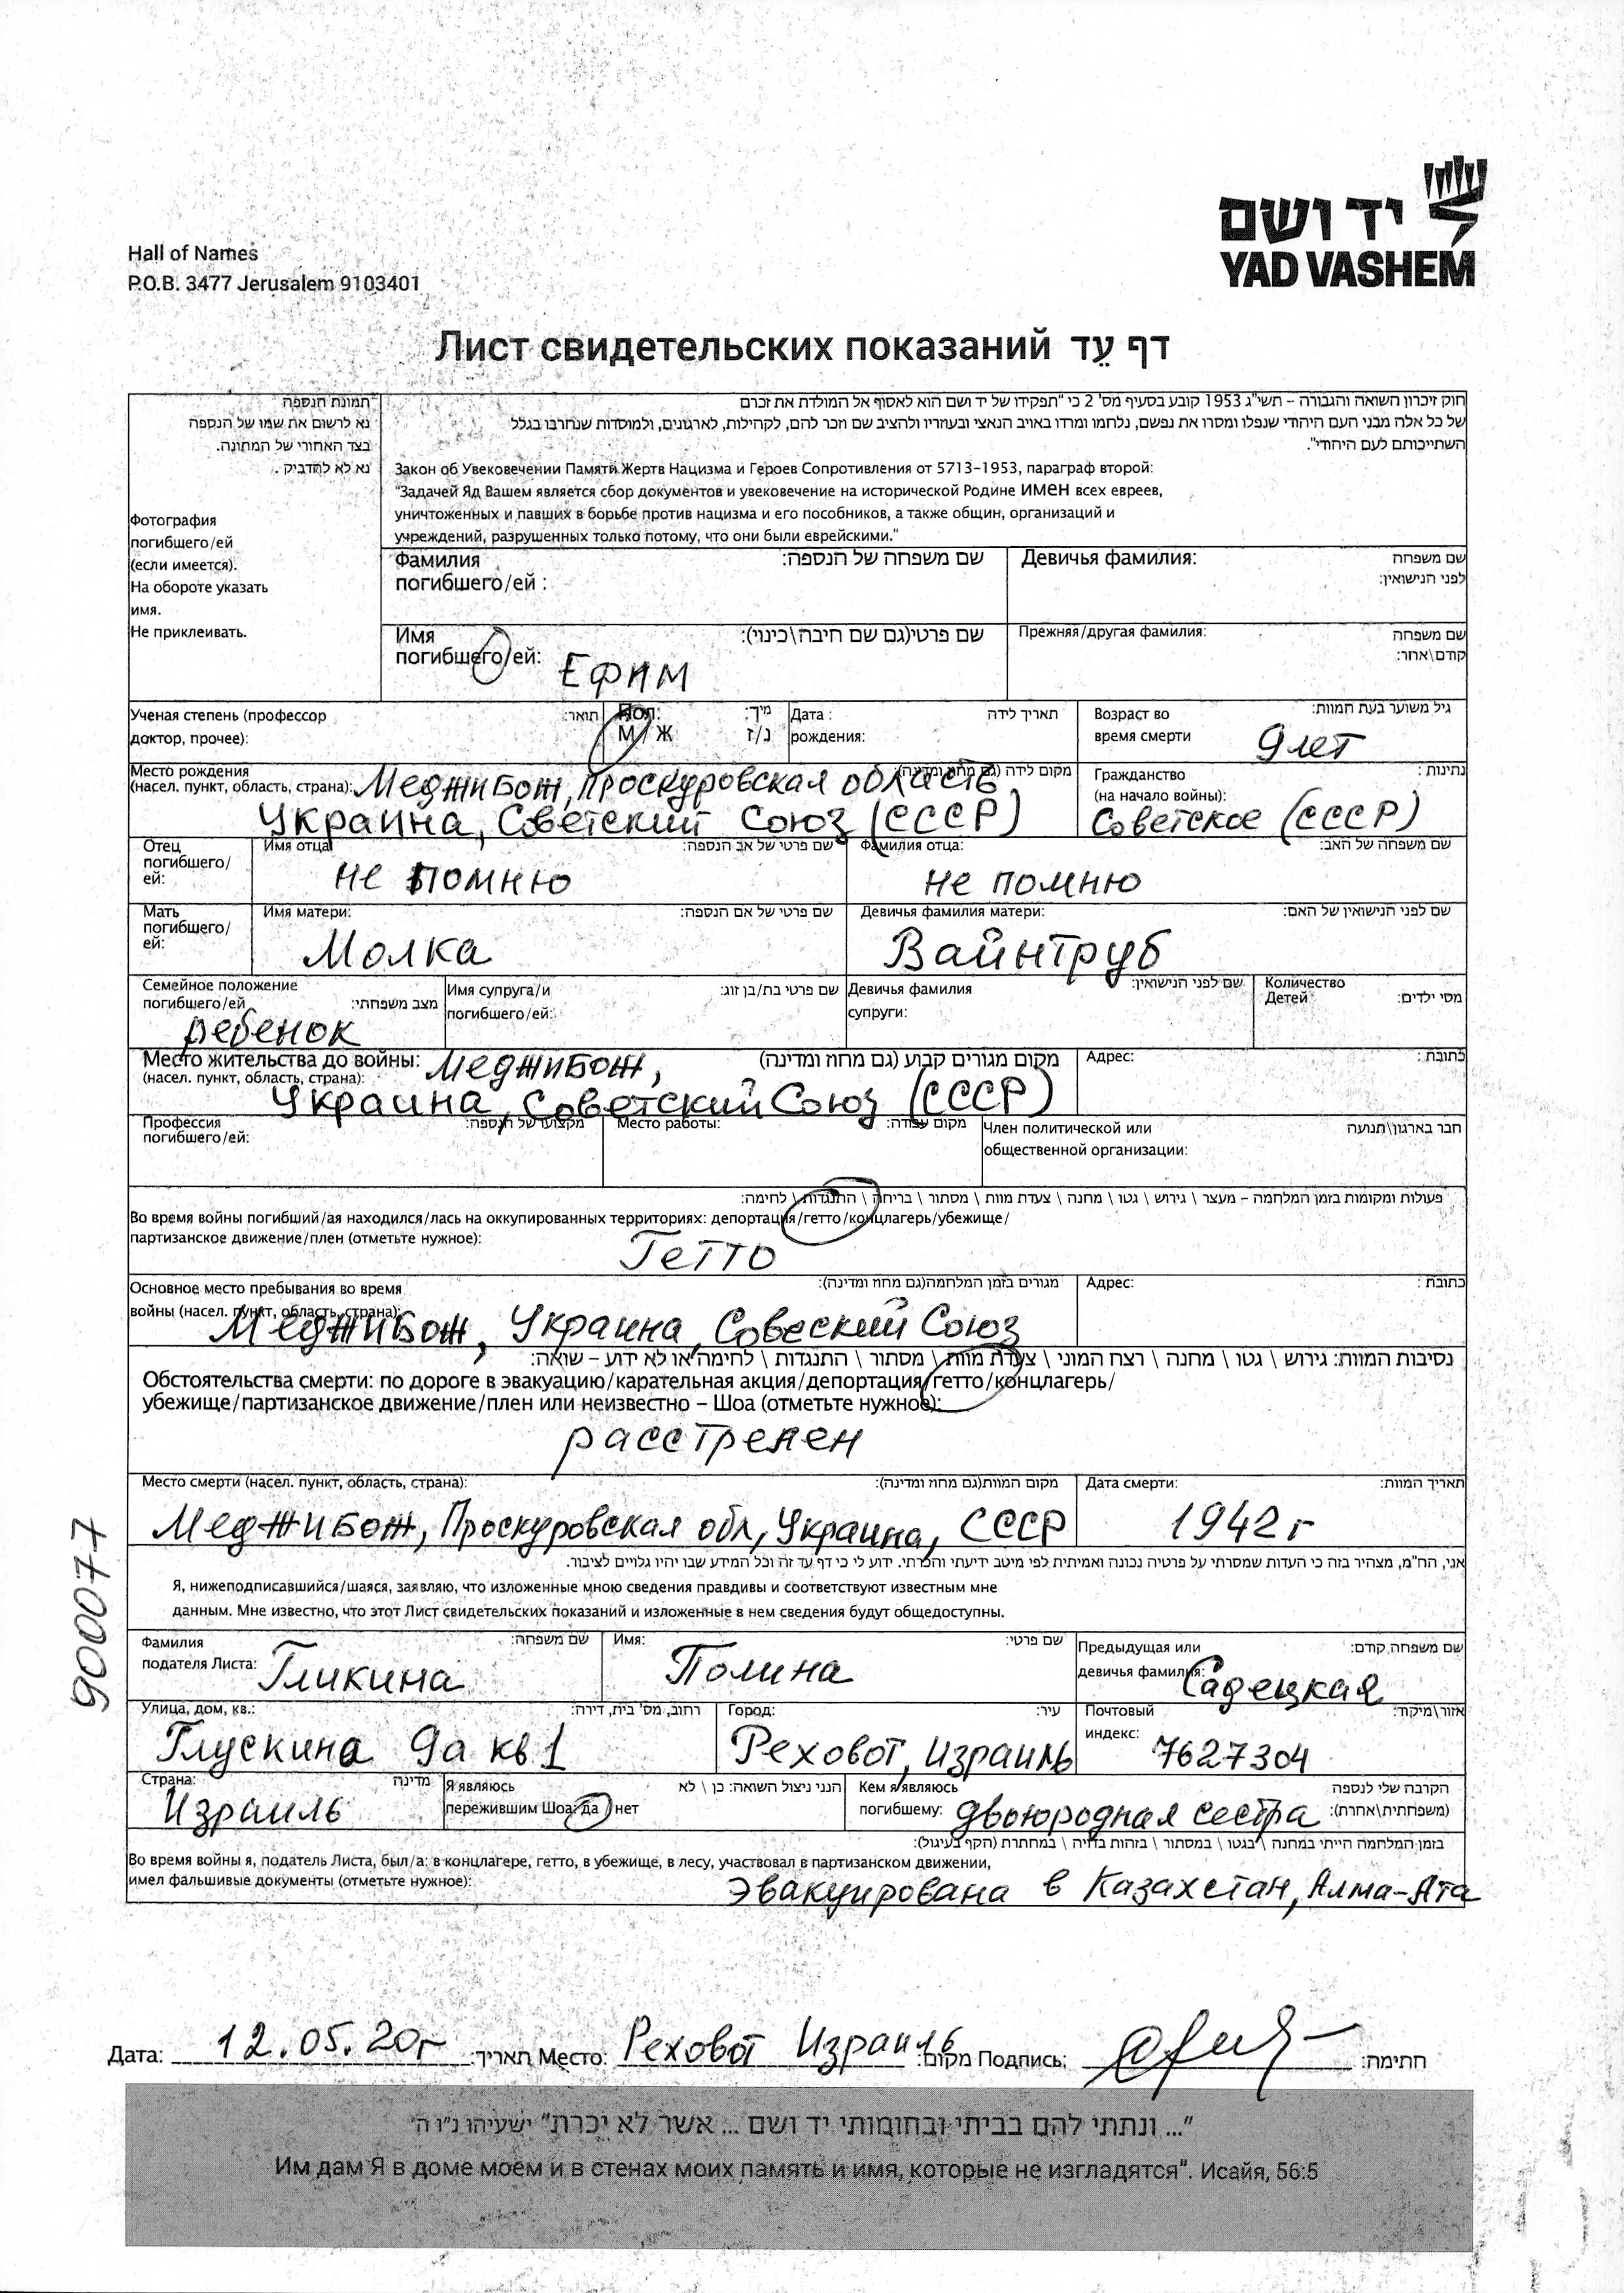 יד ושם
YAD VASHEM
Hall of Names
P.O.B. 3477 Jerusalem 9103401
Лист свидетельских показаний דף עֵד
תמונת הנספה
נא לרשום את שמו של הנספה
בצד האחורי של התמונה.
נא לא להדביק.
Фотография
погибшего/ей
(если имеется).
На обороте указать
имя.
Не приклеивать.
חוק זיכרון השואה והגבורה – תשי"ג 1953 קובע בסעיף מס' 2 כי "תפקידו של יד ושם הוא לאסוף אל המולדת את זכרם
של כל אלה מבני העם היהודי שנפלו ומסרו את נפשם, נלחמו ומרדו באויב הנאצי ובעוזריו ולהציב שם וזכר להם, לקהילות, לארגונים, ולמוסדות שנחרבו בגלל
השתייכותם לעם היהודי".
Закон об Увековечении Памяти Жертв Нацизма и Героев Сопротивления от 5713–1953, параграф второй:
"Задачей Яд Вашем является сбор документов и увековечение на исторической Родине имен всех евреев,
уничтоженных и павших в борьбе против нацизма и его пособников, а также общин, организаций и
учреждений, разрушенных только потому, что они были еврейскими."
Фамилия שם משפחה של הנספה:
погибшего/ей :
Девичья фамилия: שם משפחה
לפני הנישואין:
Имя שם פרטי(גם שם חיבה\כינוי):
погибшего/ей: Ефим
Прежняя/другая фамилия: שם משפחה
קודם\אחר:
Ученая степень (профессор תואר:
доктор, прочее):
Пол: מין:
М / Ж ז/נ
Дата : תאריך לידה
рождения:
Возраст во גיל משוער בעת המוות:
время смерти 9 лет
Место рождения מקום לידה (גם מחוז ומדינה):
(насел. пункт, область, страна): Меджибож, Проскуровская область
Украина, Советский Союз (СССР)
Гражданство נתינות :
(на начало войны):
Советское (СССР)
Отец
погибшего/
ей:
Имя отца שם פרטי של אב הנספה:
не помню
Фамилия отца: שם משפחה של האב:
не помню
Мать
погибшего/
ей:
Имя матери: שם פרטי של אם הנספה:
Молка
Девичья фамилия матери: שם לפני הנישואין של האם:
Вайнтруб
Семейное положение
погибшего/ей מצב משפחתי:
ребенок
Имя супруга/и שם פרטי בת/בן זוג:
погибшего/ей:
Девичья фамилия שם לפני הנישואין:
супруги:
Количество
Детей מס' ילדים:
Место жительства до войны: Меджибож, מקום מגורים קבוע (גם מחוז ומדינה)
(насел. пункт, область, страна):
Украина, Советский Союз (СССР)
Адрес: כתובת :
Профессия מקצועו של הנספה:
погибшего/ей:
Место работы: מקום עבודה:
Член политической или חבר בארגון\תנועה
общественной организации:
פעולות ומקומות בזמן המלחמה – מעצר \ גירוש \ גטו \ מחנה \ צעדת מוות \ מסתור \ בריחה \ התנגדות \ לחימה:
Во время войны погибший/ая находился/лась на оккупированных территориях: депортация/гетто/концлагерь/убежище/
партизанское движение/плен (отметьте нужное):
Гетто
Основное место пребывания во время מגורים בזמן המלחמה(גם מחוז ומדינה):
войны (насел. пункт, область, страна):
Меджибож, Украина, Совеский Союз
Адрес: כתובת :
נסיבות המוות: גירוש \ גטו \ מחנה \ רצח המוני \ צעדת מוות \ מסתור \ התנגדות \ לחימה או לא ידוע – שואה:
Обстоятельства смерти: по дороге в эвакуацию/карательная акция/депортация/гетто/концлагерь/
убежище/партизанское движение/плен или неизвестно – Шоа (отметьте нужное):
расстрелен
Место смерти (насел. пункт, область, страна): מקום המוות(גם מחוז ומדינה):
Меджибож, Проскуровская обл, Украина, СССР
Дата смерти: תאריך המוות:
1942 г
900077
אני, הח"מ, מצהיר בזה כי העדות שמסרתי על פרטיה נכונה ואמיתית לפי מיטב ידיעתי והכרתי. ידוע לי כי דף עד זה וכל המידע שבו יהיו גלויים לציבור.
Я, нижеподписавшийся/шаяся, заявляю, что изложенные мною сведения правдивы и соответствуют известным мне
данным. Мне известно, что этот Лист свидетельских показаний и изложенные в нем сведения будут общедоступны.
Фамилия שם משפחה:
подателя Листа: Гликина
Имя: שם פרטי:
Полина
Предыдущая или שם משפחה קודם:
девичья фамилия:
Садецкая
Улица, дом, кв.: רחוב, מס' בית, דירה:
Глускина 9а кв 1
Город: עיר:
Реховот, Израиль
Почтовый אזור\מיקוד:
индекс: 7627304
Страна: מדינה
Израиль
Я являюсь הנני ניצול השואה: כן \ לא
пережившим Шоа: да / нет
Кем я являюсь הקרבה שלי לנספה
погибшему: двоюродная сестра (משפחתית\אחרת):
בזמן המלחמה הייתי במחנה \ בגטו \ במסתור \ בזהות בדויה \ במחתרת (הקף בעיגול):
Во время войны я, податель Листа, был/а: в концлагере, гетто, в убежище, в лесу, участвовал в партизанском движении,
имел фальшивые документы (отметьте нужное):
Эвакуирована в Казахстан, Алма-Ата
Дата: 12.05.20г תאריך: Место: Реховот Израиль מקום: Подпись: חתימה:
"... ונתתי להם בביתי ובחומותי יד ושם ... אשר לא יכרת" ישעיהו נ"ו ה'
Им дам Я в доме моем и в стенах моих память и имя, которые не изгладятся". Исайя, 56:5